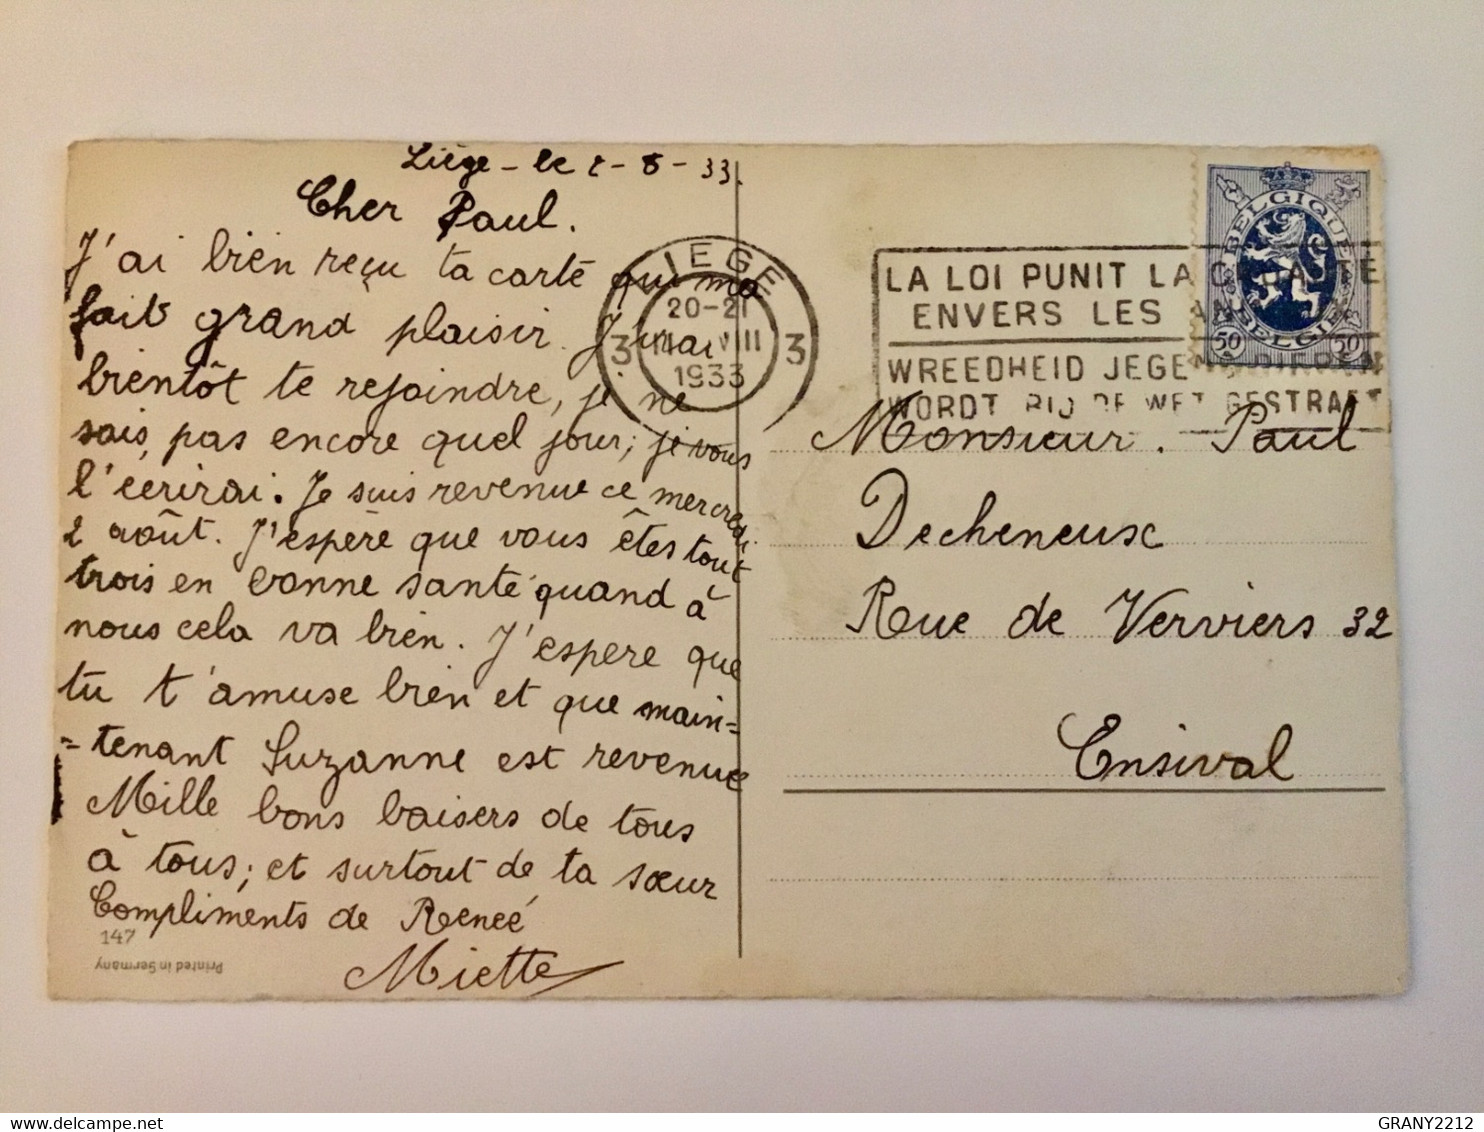 Liège - le 2-8-33.
Cher Paul.
J'ai bien reçu ta carte qui ma
fait grand plaisir. J'irai
bientôt te rejoindre, je ne
sais, pas encore quel jour; je vous
l'écrirai. Je suis revenue ce mercredi
2 août. J'espère que vous êtes tout
trois en bonne santé quand à
nous cela va bien. J'espere que
tu t'amuse bien et que main=
=tenant Suzanne est revenue
Mille bons baisers de tous
à tous; et surtout de ta sœur
Compliments de Reneé
Miette
147
Printed in Germany
LIEGE
20-21
VIII
1933
3 3
LA LOI PUNIT LA CRUAUTÉ
ENVERS LES
WREEDHEID JEGENS DIEREN
WORDT BIJ DE WET GESTRAFT
BELGIQUE
BELGIE
50 50
Monsieur. Paul
Decheneux
Rue de Verviers 32
Ensival
delcampe.net
GRANY2212